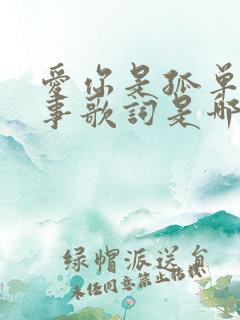 愛你是孤單
事歌詞是那
綠帽派送員
未任同意禁止转载